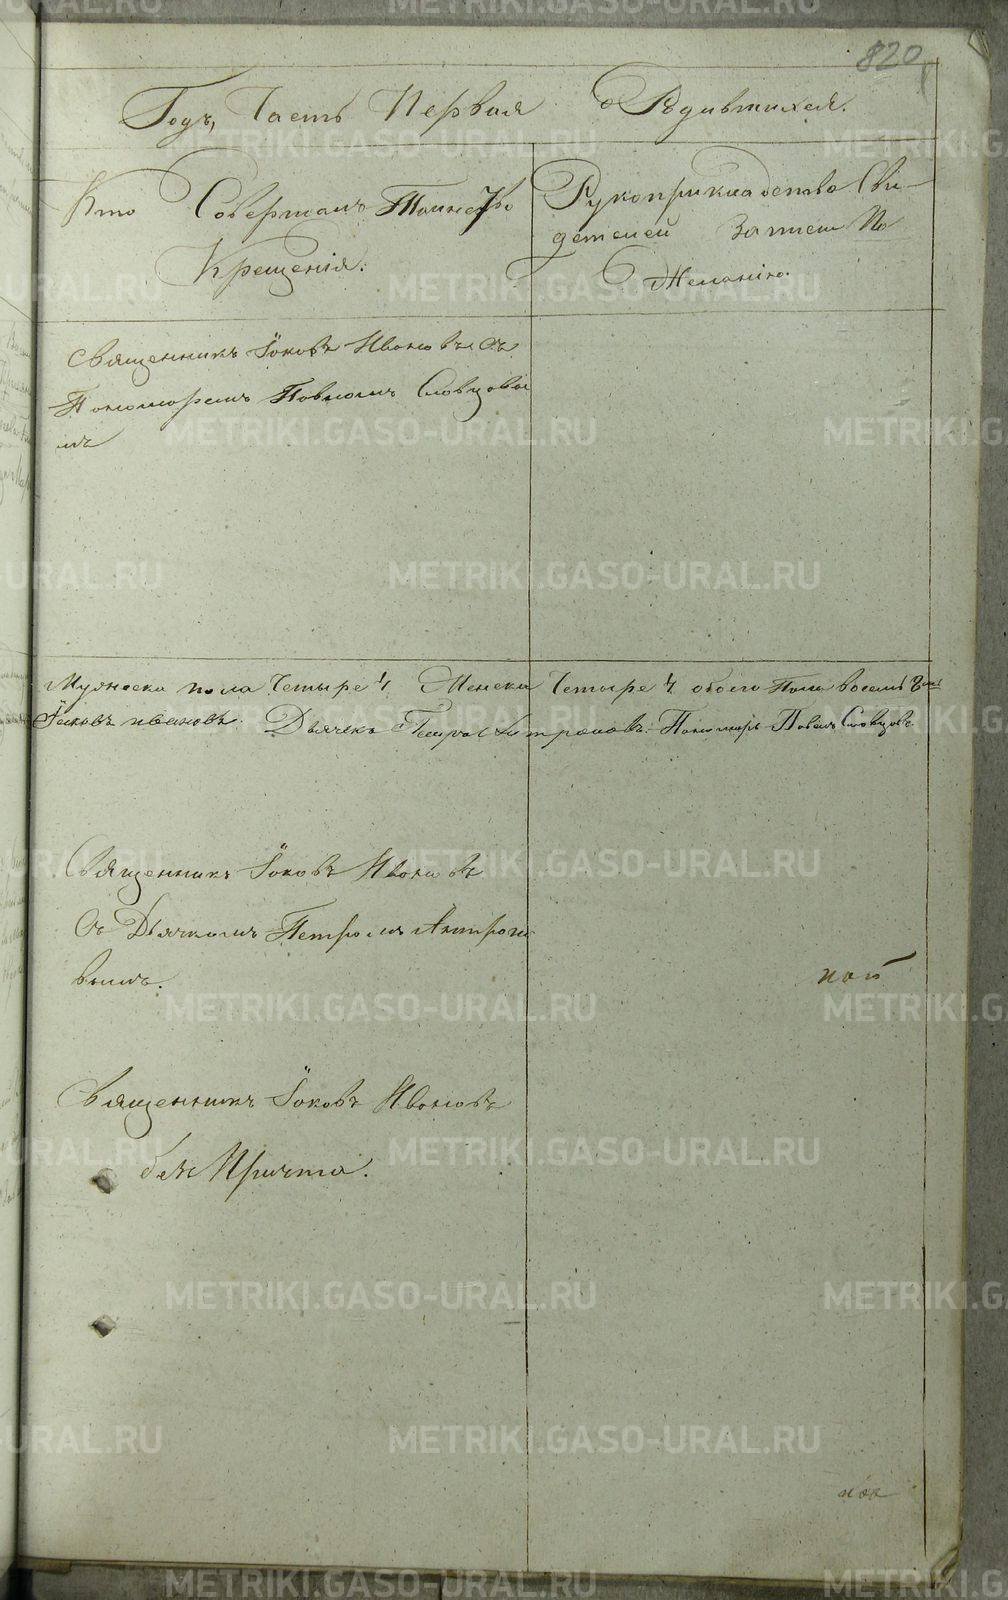 820
Годъ, Часть Первая о Родившихся.
Кто Совершалъ Таинство
Крещенія:
Рукоприкладство Сви-
детелей Записи По
Желанію.
Священникъ Іаковъ Ивановъ Съ
Пономаремъ Павломъ Словцовы
мъ
Мужеска пола Четыре 4 Женска Четыре 4 обоего Пола восемь 8
Іаковъ Ивановъ. Дьячекъ Петръ Антроповъ. Пономарь Павелъ Словцовъ
Священникъ Іаковъ Ивановъ
Съ Дьячкомъ Петромъ Антропо
вымъ.
Священникъ Іаковъ Ивановъ
безъ Причта.
METRIKI.GASO-URAL.RU